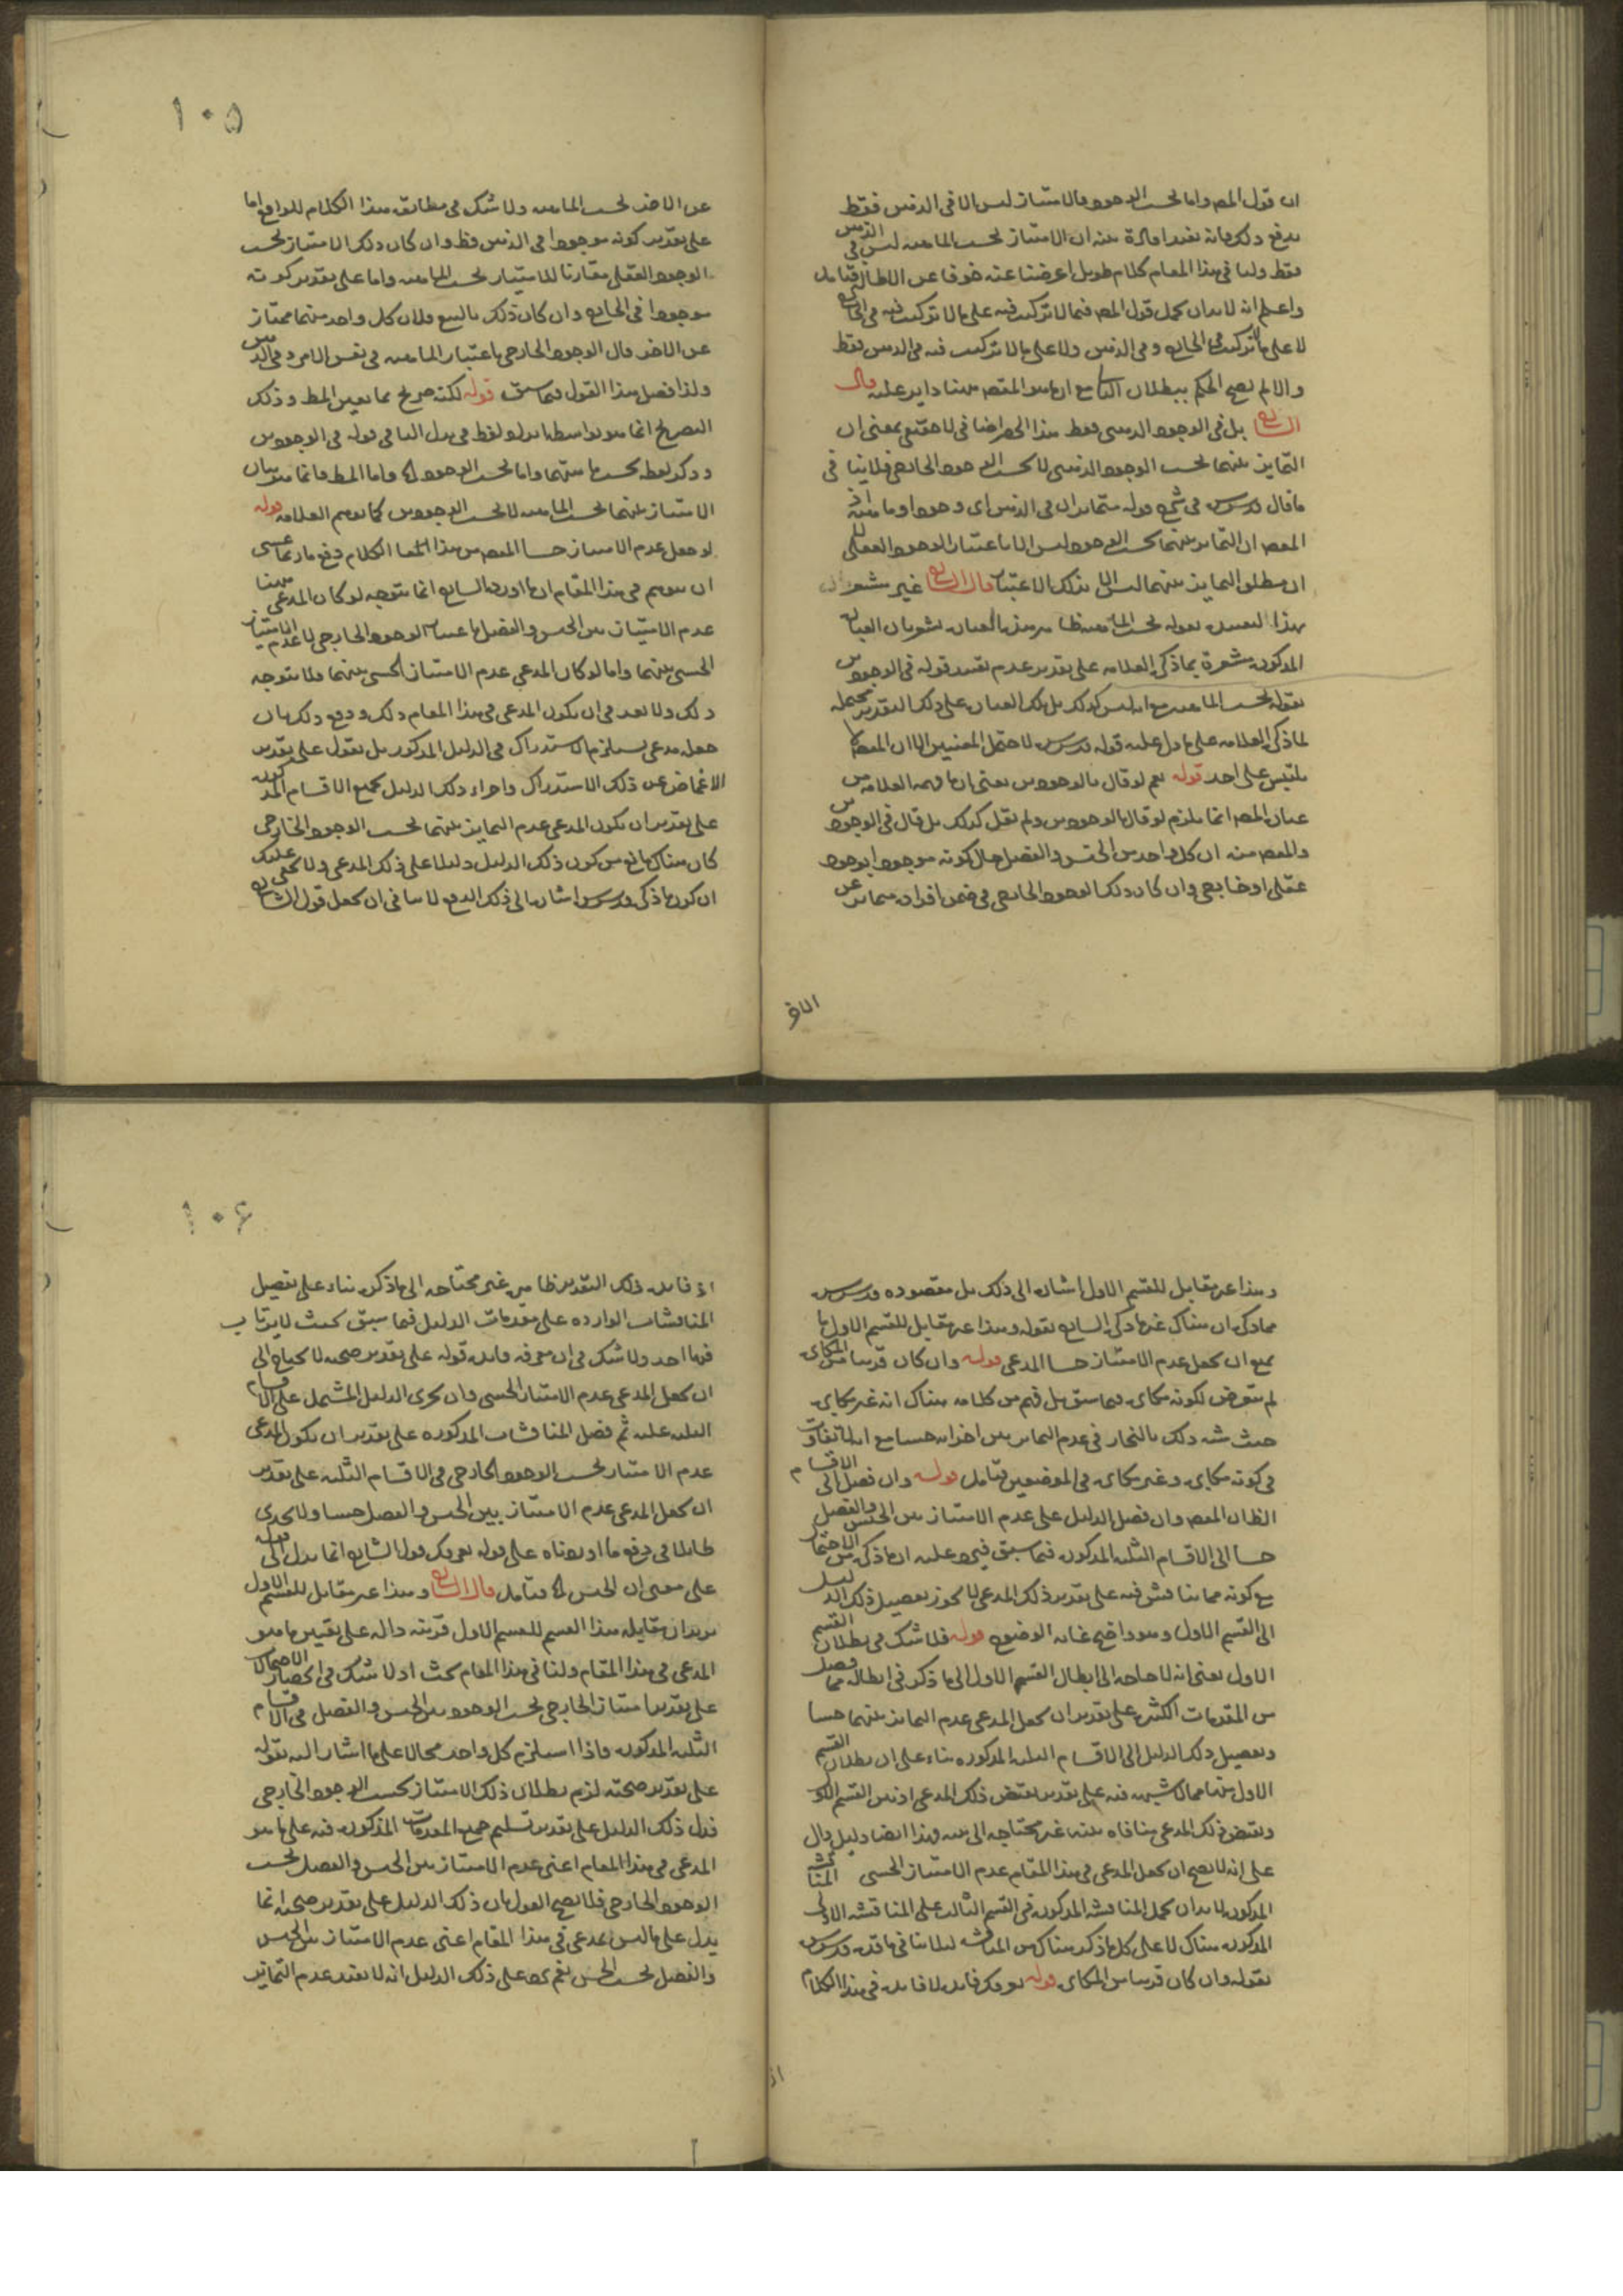 ان قول المص واما بحسب الوجود فالامتياز ليس الا في الذهن فقط
يدفع ذلك فانه يفيد افادة بينه ان الامتياز بحسب الماهيه ليس في الذهن
فقط ولنا في هذا المقام كلام طويل اعرضنا عنه خوفا عن الاطالة فتامل
واعلم انه لابد ان يحمل قول المص فيما لا تركيب فيه على ما لا تركيب فيه في الخارج
لا على ما لا تركيب في الخارج وفي الذهن ولا على ما لا تركيب فيه في الذهن فقط
والا لم يصح الحكم ببطلان مع ان ما هو المقصم هنا داير عليه قال
الشارح بل في الوجود الذهني فقط هذا الحصر اضافي لا حقيقي بمعنى ان
التمايز بينهما بحسب الوجود الذهني لا بحسب الوجود الخارجي فلا ينافي
ما قال قدس سره في شرح قوله متمايزان في الذهن اي وجودا وماهية اذ
المقصم ان التمايز بينهما بحسب الوجود ليس الا باعتبار الوجود العقلي لا
ان مطلق التمايز بينهما ليس الا بذلك الاعتبار قال الشارح غير مشعر
بهذا بقوله بحسب الماهيه هذه العبارة
المذكورة مشعرة بما ذكره العلامه على تقدير عدم تقييد قوله في الوجودين
بقوله بحسب الماهيه مع انه ليس كذلك بل تلك العبارة على ذلك التقدير محتملة
لما ذكره العلامه على ما دل عليه قوله قدس سره لاحتمل المعنيين الا ان المقصم لا
يلتبس على احد قوله نعم لو قال بالوجودين يعني ان ما فهمه العلامه من
عبارة المص انما يلزم لو قال بالوجودين ولم يقل كذلك بل قال في الوجودين
والمقصم منه ان كل واحد من الجنس والفصل حال كونه موجودا بوجود
عقلي او خارجي وان كان ذلك الوجود الخارجي في ضمن افراده متمايز عن
الاخر
١٠٥
عن الاخر بحسب الماهيه ولا شك في مطابقه هذا الكلام للواقع اما
على تقدير كونه موجودا في الذهن فظ وان كان ذلك الامتياز بحسب
الوجود العقلي مقارنا للامتياز بحسب الماهيه واما على تقدير كونه
موجودا في الخارج وان كان ذلك بالتبع فلان كل واحد منهما ممتاز
عن الاخر حال الوجود الخارجي باعتبار الماهيه في نفس الامر وفي الذهن
ولذا فصل هذا القول فيما سبق قوله لكنه صريح بما يعين المط وذلك
التصريح انما هو بواسطة ايراد لفظ في بدل البا في قوله في الوجودين
وذكر لفظه بحسب ماهيتهما واما بحسب الوجود الخ واما المط فانما هو بيان
الامتياز بينهما بحسب الماهيه لا بحسب الوجودين كما توهم العلامه قوله
لو جعل عدم الامتياز حسا المقصم من هذا الكلام دفع ما ربما عسى
ان يتوهم في هذا المقام ان ما اورده الشارح انما يتوجه لو كان المدعى هنا
عدم الامتياز بين الجنس والفصل باعتبار الوجود الخارجي لا عدم الامتياز
الحسي بينهما واما لو كان المدعى عدم الامتياز الحسي بينهما فلا يتوجه
ذلك ولا بعد في ان يكون المدعى في هذا المقام ذلك ودفع ذلك بان
جعله مدعى يستلزم الاستدراك في الدليل المذكور بل نقول على تقدير
الاغماض عن ذلك الاستدراك واجراء ذلك الدليل بجميع الاقسام المذكورة
على تقدير ان يكون المدعى عدم التمايز بينهما بحسب الوجود الخارجي
كان هناك مانع من كون ذلك الدليل دليلا على ذلك المدعى ولا يخفى عليك
ان كون ما ذكره قدس سره اشارة الى ذلك الدفع لا ينافي ان يجعل قول الشارح
وهذا غير مقابل للقسم الاول اشارة الى ذلك بل مقصوده قدس سره
مما ذكر ان هناك غير ما ذكره الشارح بقوله وهذا غير مقابل للقسم الاول ما
يمنع ان يجعل عدم الامتياز حسا المدعى قوله وان كان قريبا من المكابرة
لم يتعرض لكونه مكابرة فيما سبق بل فهم من كلامه هناك انه غير مكابرة
حيث شبه ذلك بالبخار في عدم التمايز بين اجزائه حسا مع انه لا تفاوت
في كونه مكابرة وغير مكابرة في الموضعين فتامل قوله وان فصل الى الاقسام
الظ ان المقصم وان فصل الدليل على عدم الامتياز بين الجنس والفصل
حسا الى الاقسام الثلثه المذكورة فيما سبق فيرد عليه ان ما ذكره من الاحتمال
مع كونه مما يناقش فيه على تقدير ذلك المدعى لا يجوز تفصيل ذلك الدليل
الى القسم الاول وهو واضح غاية الوضوح قوله فلا شك في بطلان القسم
الاول يعني انه لا حاجه الى ابطال القسم الاول الى ما ذكر في ابطاله مما فصل
من المقدمات الكثيرة على تقدير ان يجعل المدعى عدم التمايز بينهما حسا
وتفصيل ذلك الدليل الى الاقسام الثلثه المذكوره بناء على ان بطلان القسم
الاول هنا مما لا شبهه فيه على تقدير نقيض ذلك المدعى اذ بين القسم الاول
ونقيض ذلك المدعى منافاة بينة غير محتاجه الى بينه وهذا ايضا دليل دال
على انه لا يصح ان يجعل المدعى في هذا المقام عدم الامتياز الحسي المناقشه
المذكورة لابد ان يحمل المناقشه المذكورة في القسم الثالث على المناقشه الاولى
المذكوره هناك لا على كل ما ذكر هناك من المناقشه لئلا ينافي ما قدمه قدس سره
بقوله وان كان قريبا من المكابرة قوله لا فايدة في هذا الكلام
اذ
١٠٦
اذ فايدة ذلك التقدير ظاهرة غير محتاجه الى ما ذكره بناء على تفصيل
المناقشات الوارده على مقدمات الدليل فيما سبق بحيث لا يرتاب
فيها احد ولا شك في ان معرفه فايدة قوله على تقدير صحته لا يحتاج الى
ان يجعل المدعى عدم الامتياز الحسي وان يجرى الدليل المشتمل على الاقسام
الثلثه عليه ثم فصل المناقشات المذكوره على تقدير ان يكون المدعى
عدم الامتياز بحسب الوجود الخارجي في الاقسام الثلثه على تقدير
ان يجعل المدعى عدم الامتياز بين الجنس والفصل حسا ولا يجدى
طائلا في دفع ما اوردناه على قوله قول الشارح انما يدل الى قوله
على معنى ان الجنس الخ فتامل قال الشارح وهذا غير مقابل للقسم الاول
يريد ان مقابله هذا القسم للقسم الاول قرينه دالة على تعيين ما هو
المدعى في هذا المقام ولنا في هذا المقام بحث اذ لا شك في انحصار الاحتمال
على تقدير امتياز الخارجي بحسب الوجود بين الجنس والفصل في الاقسام
الثلثه المذكورة فاذا استلزم كل واحد محالا على ما اشار اليه بقوله
على تقدير صحته لزم بطلان ذلك الامتياز بحسب الوجود الخارجي
فدل ذلك الدليل على تقدير تسليم جميع المقدمات المذكورة فيه على ما هو
المدعى في هذا المقام اعني عدم الامتياز بين الجنس والفصل بحسب
الوجود الخارجي فلا يصح القول بان ذلك الدليل على تقدير صحته انما
يدل على ما ليس بمدعى في هذا المقام اعني عدم الامتياز بين الجنس
والفصل بحسب الحس نعم يرد على ذلك الدليل انه لا يفيد عدم التمايز